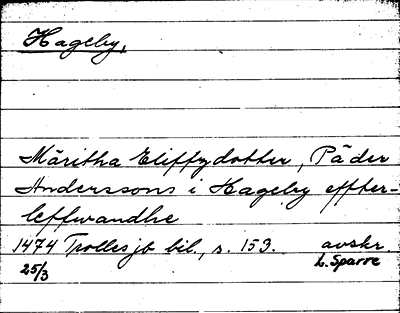 Hageby,
Märitha Eliffzdotter, Päder
Anderssons i Hageby effter-
leffwandhe
1474 Trollesjö bil., s. 153. avskr.
25/3 L. Sparre